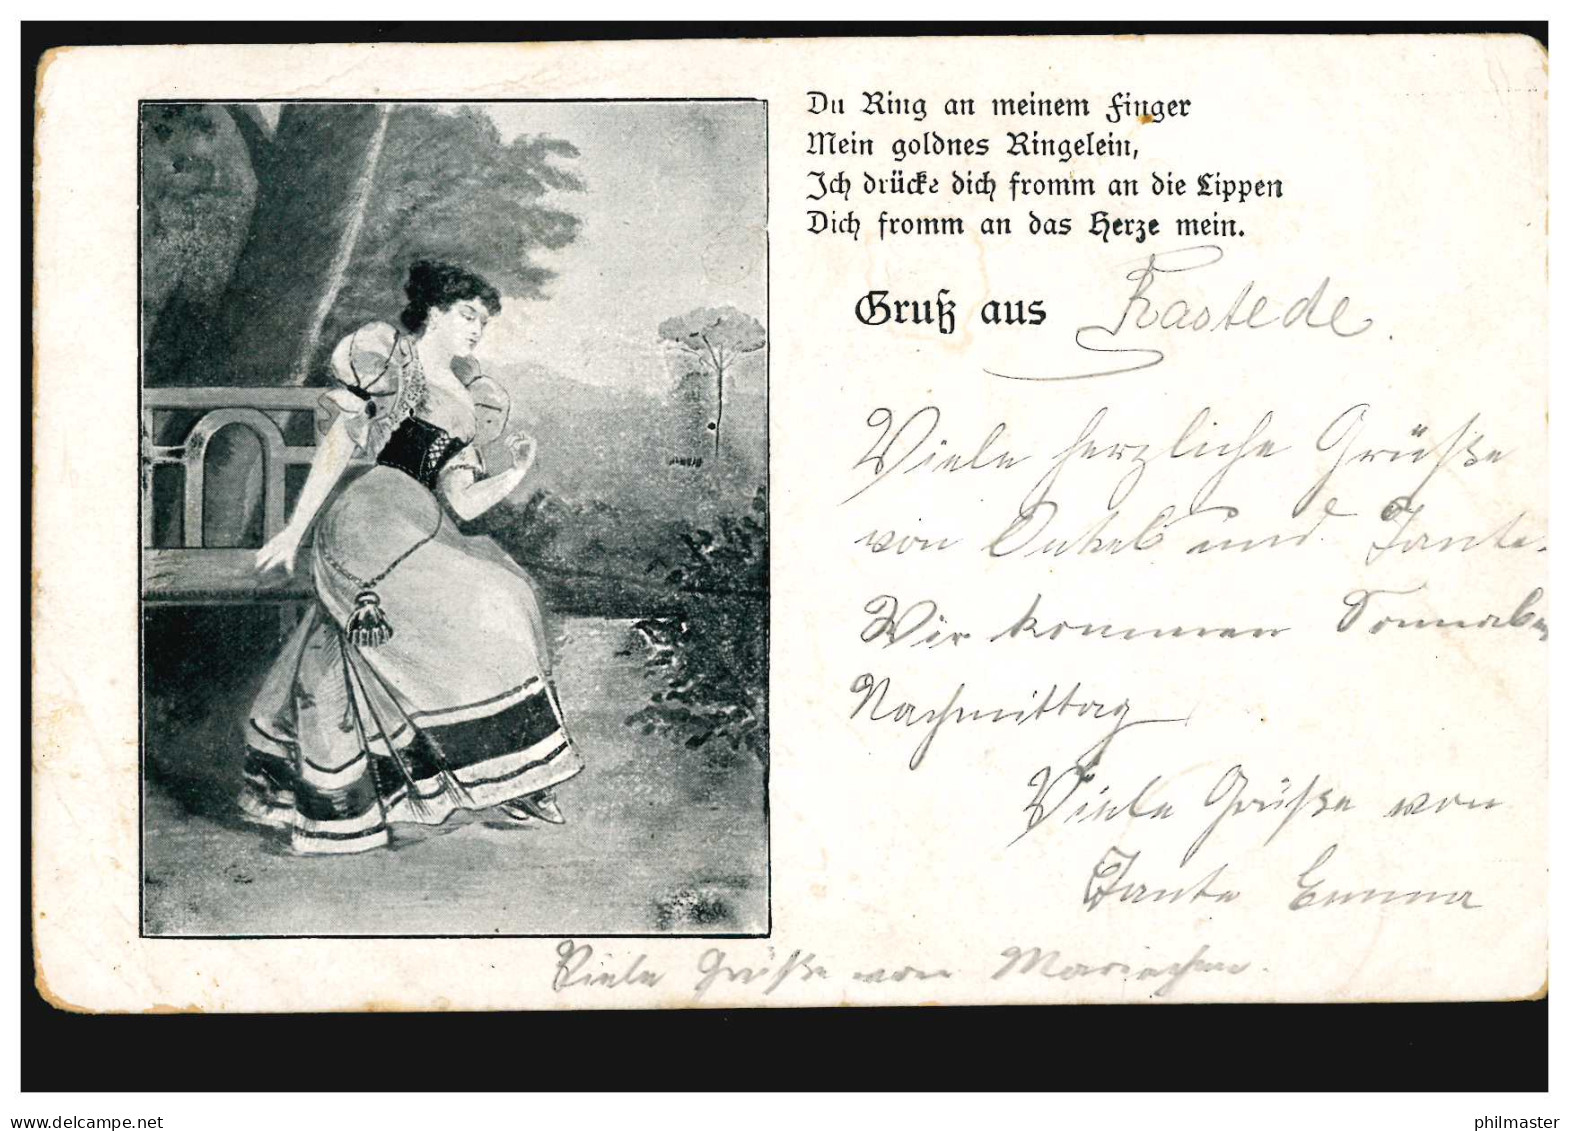 Du Ring an meinem Finger
Mein goldnes Ringelein,
Ich drücke dich fromm an die Lippen
Dich fromm an das Herze mein.
Gruß aus Rastede.
Viele herzliche Grüße
von Onkel und Tante.
Wir kommen Sonnaben
Nachmittag
Viele Grüße von
Tante Emma
Viele Grüße von Mariechen.
www.delcampe.net
philmaster